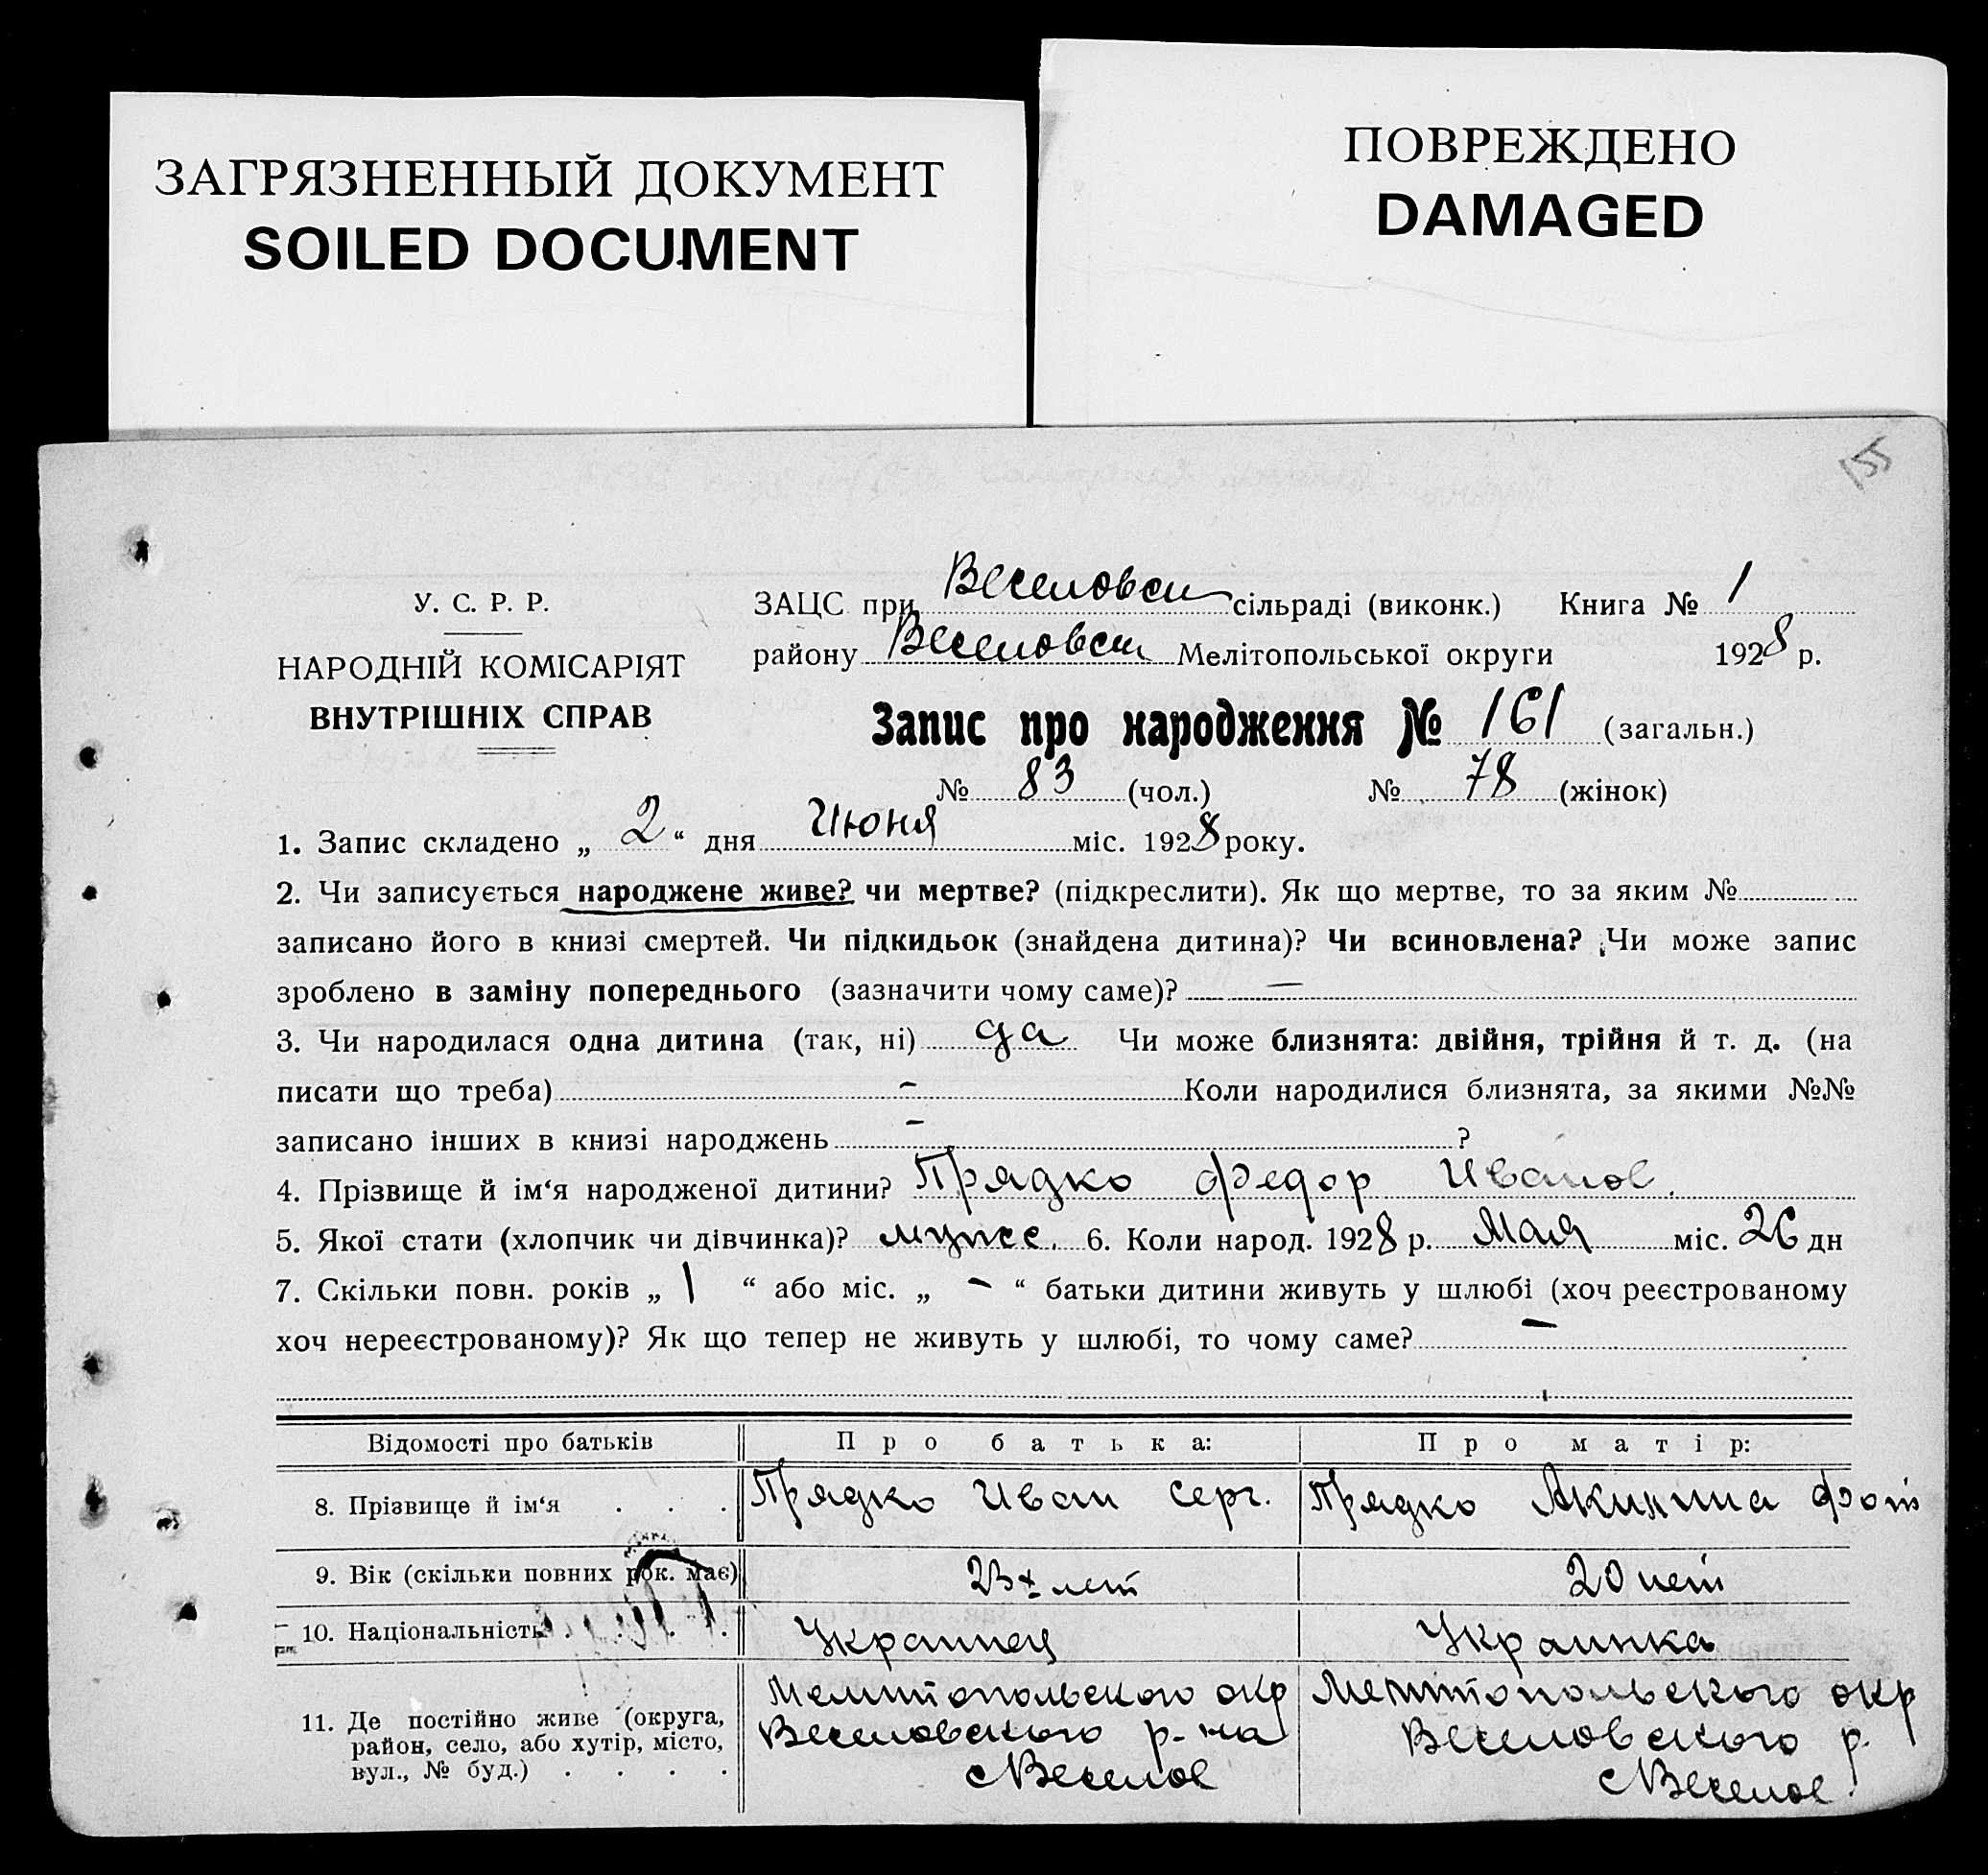 ЗАГРЯЗНЕННЫЙ ДОКУМЕНТ
SOILED DOCUMENT
ПОВРЕЖДЕНО
DAMAGED
155
У. С. Р. Р.
НАРОДНІЙ КОМІСАРІЯТ
ВНУТРІШНІХ СПРАВ
ЗАЦС при Веселовск сільраді (виконк.) Книга № 1
району Веселовск Мелітопольської округи 1928 р.
Запис про народження № 161 (загальн.)
№ 83 (чол.) № 78 (жінок)
1. Запис складено „ 2 “ дня Июня міс. 1928 року.
2. Чи записується народжене живе? чи мертве? (підкреслити). Як що мертве, то за яким №
записано його в книзі смертей. Чи підкидьок (знайдена дитина)? Чи всиновлена? Чи може запис
зроблено в заміну попереднього (зазначити чому саме)? —
3. Чи народилася одна дитина (так, ні) да Чи може близнята: двійня, трійня й т. д. (на
писати що треба) - Коли народилися близнята, за якими №№
записано інших в книзі народжень - ?
4. Прізвище й ім‘я народженої дитини? Прядко Федор Иванов.
5. Якої стати (хлопчик чи дівчинка)? мужс. 6. Коли народ. 1928 р. Мая міс. 26 дн
7. Скільки повн. років „ 1 “ або міс. „ - “ батьки дитини живуть у шлюбі (хоч реєстрованому
хоч нереєстрованому)? Як що тепер не живуть у шлюбі, то чому саме? -
Відомості про батьків
Про батька:
Про матір:
8. Прізвище й ім‘я . . .
Прядко Иван Серг.
Прядко Акилина Фот
9. Вік (скільки повних рок. має)
23х лет
20 лет
10. Національність . . . .
Украинец
Украинка
11. Де постійно живе (округа,
район, село, або хутір, місто,
вул., № буд.) . . . .
Мелитопольского окр
Веселовского р-на
с Веселое
Мелитопольского окр
Веселовского р.
с Веселое.